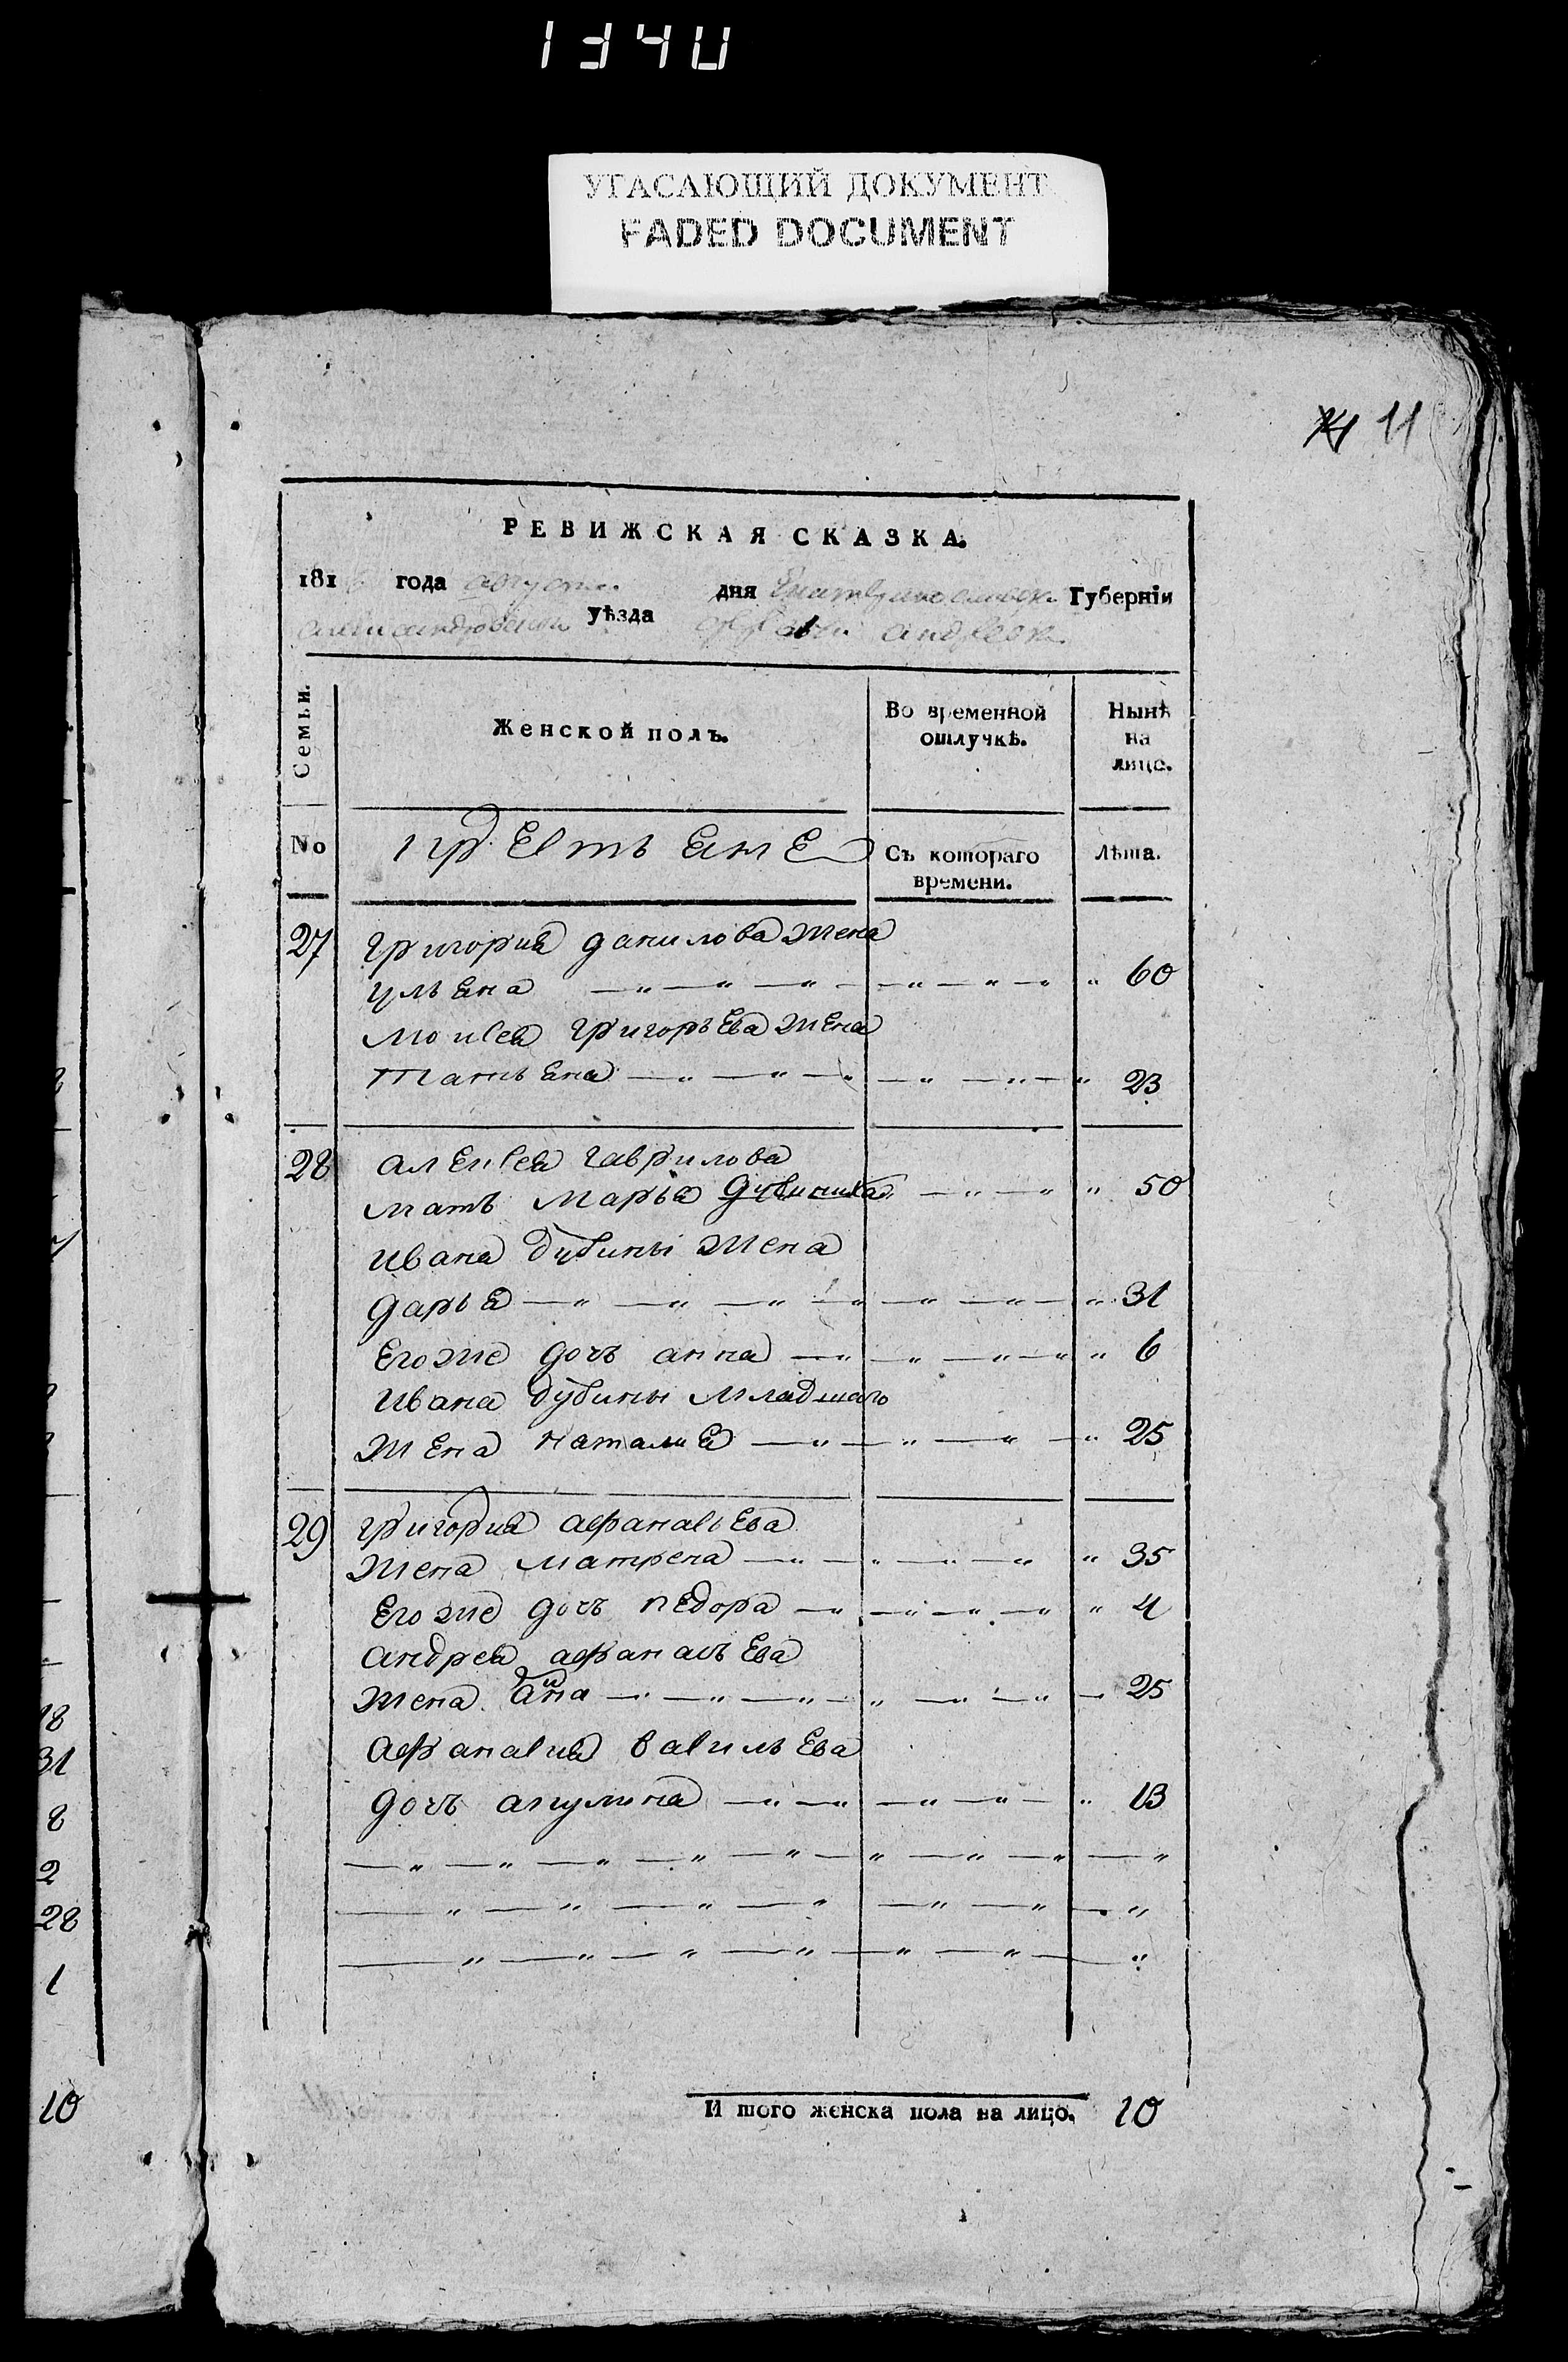 1340
УГАСАЮЩИЙ ДОКУМЕНТ
FADED DOCUMENT
11
РЕВИЖСКАЯ СКАЗКА.
181 года августа дня Екатеринославской Губерніи
александровскаго уѣзда андреевки
Семьи.
Женской полъ.
Во временной отлучкѣ.
Нынѣ на лицо.
No
крестьяне
Съ котораго времени.
Лѣта.
27 Григория данилова жена
ульяна 60
Моисея григорьева жена
татьяна 23
28 алексея гаврилова
мать марья дубиниха 50
Ивана дубины жена
дарья 31
Егоже дочь анна 6
Ивана дубины младшаго
жена наталия 25
29 григория афанасьева
жена матрена 35
Егоже дочь педора 4
андрея афанасьева
жена анна 25
афанасия васильева
дочь акулина 13
И того женска пола на лицо. 10
18
31
8
2
28
1
10